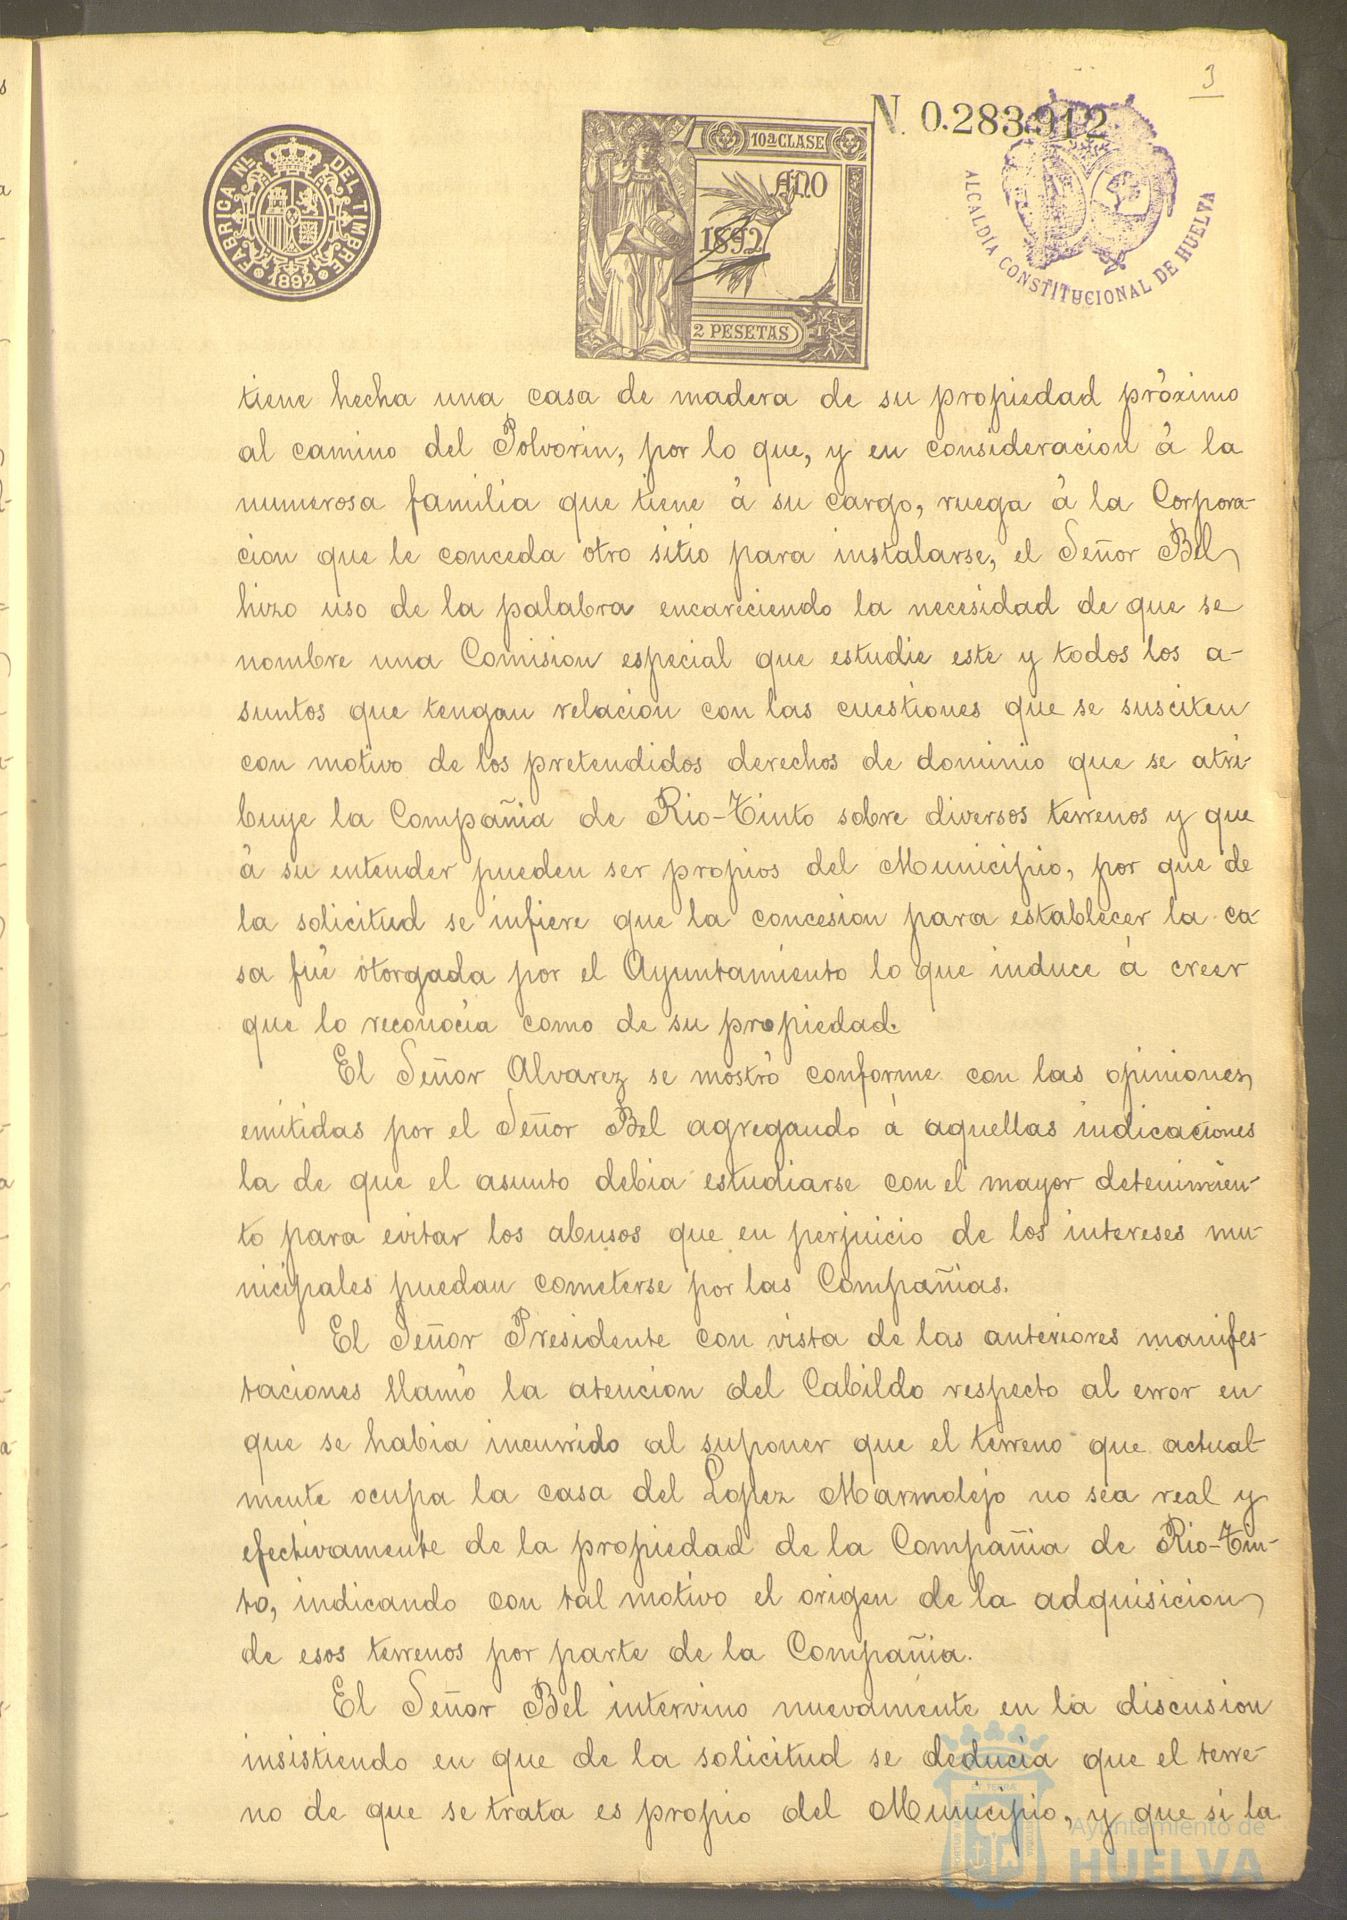 3
N. 0.283.912
FABRICA NL. DEL TIMBRE
1892
10ª CLASE
AÑO
1892
2 PESETAS
ALCALDÍA CONSTITUCIONAL DE HUELVA
tiene hecha una casa de madera de su propiedad próximo
al camino del Polvorin, por lo que, y en consideracion á la
numerosa familia que tiene á su cargo, ruega á la Corpora-
cion que le conceda otro sitio para instalarse, el Señor Bel
hizo uso de la palabra encareciendo la necesidad de que se
nombre una Comision especial que estudie este y todos los a-
suntos que tengan relacion con las cuestiones que se susciten
con motivo de los pretendidos derechos de dominio que se atri-
buye la Compañia de Rio-Tinto sobre diversos terrenos y que
á su entender pueden ser propios del Municipio, por que de
la solicitud se infiere que la concesion para establecer la ca-
sa fué otorgada por el Ayuntamiento lo que induce á creer
que lo reconocia como de su propiedad.
El Señor Alvarez se mostró conforme con las opiniones
emitidas por el Señor Bel agregando á aquellas indicaciones
la de que el asunto debia estudiarse con el mayor detenimien-
to para evitar los abusos que en perjuicio de los intereses mu-
nicipales puedan cometerse por las Compañias.
El Señor Presidente con vista de las anteriores manifes-
taciones llamó la atencion del Cabildo respecto al error en
que se habia incurrido al suponer que el terreno que actual-
mente ocupa la casa del Lopez Marmolejo no sea real y
efectivamente de la propiedad de la Compañia de Rio-Tin-
to, indicando con tal motivo el origen de la adquisicion
de esos terrenos por parte de la Compañia.
El Señor Bel intervino nuevamente en la discusion
insistiendo en que de la solicitud se deducia que el terre-
no de que se trata es propio del Municipio, y que si la
Ayuntamiento de
HUELVA